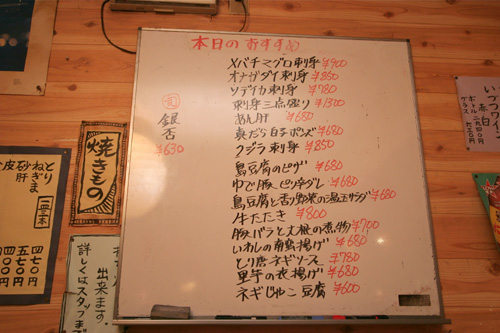 本日のおすすめ
メバチマグロ刺身 ¥900
オナガダイ刺身 ¥850
ソデイカ刺身 ¥780
刺身三点盛り ¥1300
あん肝 ¥680
真だら白子ポンズ ¥680
クジラ刺身 ¥850
島豆腐のピザ ¥680
ゆで豚ピリ辛ダレ ¥680
島豆腐と香り野菜の温玉サラダ ¥680
牛たたき ¥800
豚バラと大根の煮物 ¥700
いわしの南蛮揚げ ¥680
とり唐ネギソース ¥780
里芋の衣揚げ ¥680
ネギじゃこ豆腐 ¥600
銀杏
¥630
焼きもの
とりももねぎま
砂肝
皮
四七〇
四五〇
四〇〇
出来ます。
詳しくはスタッフまで
赤
白
ボトル
グラス